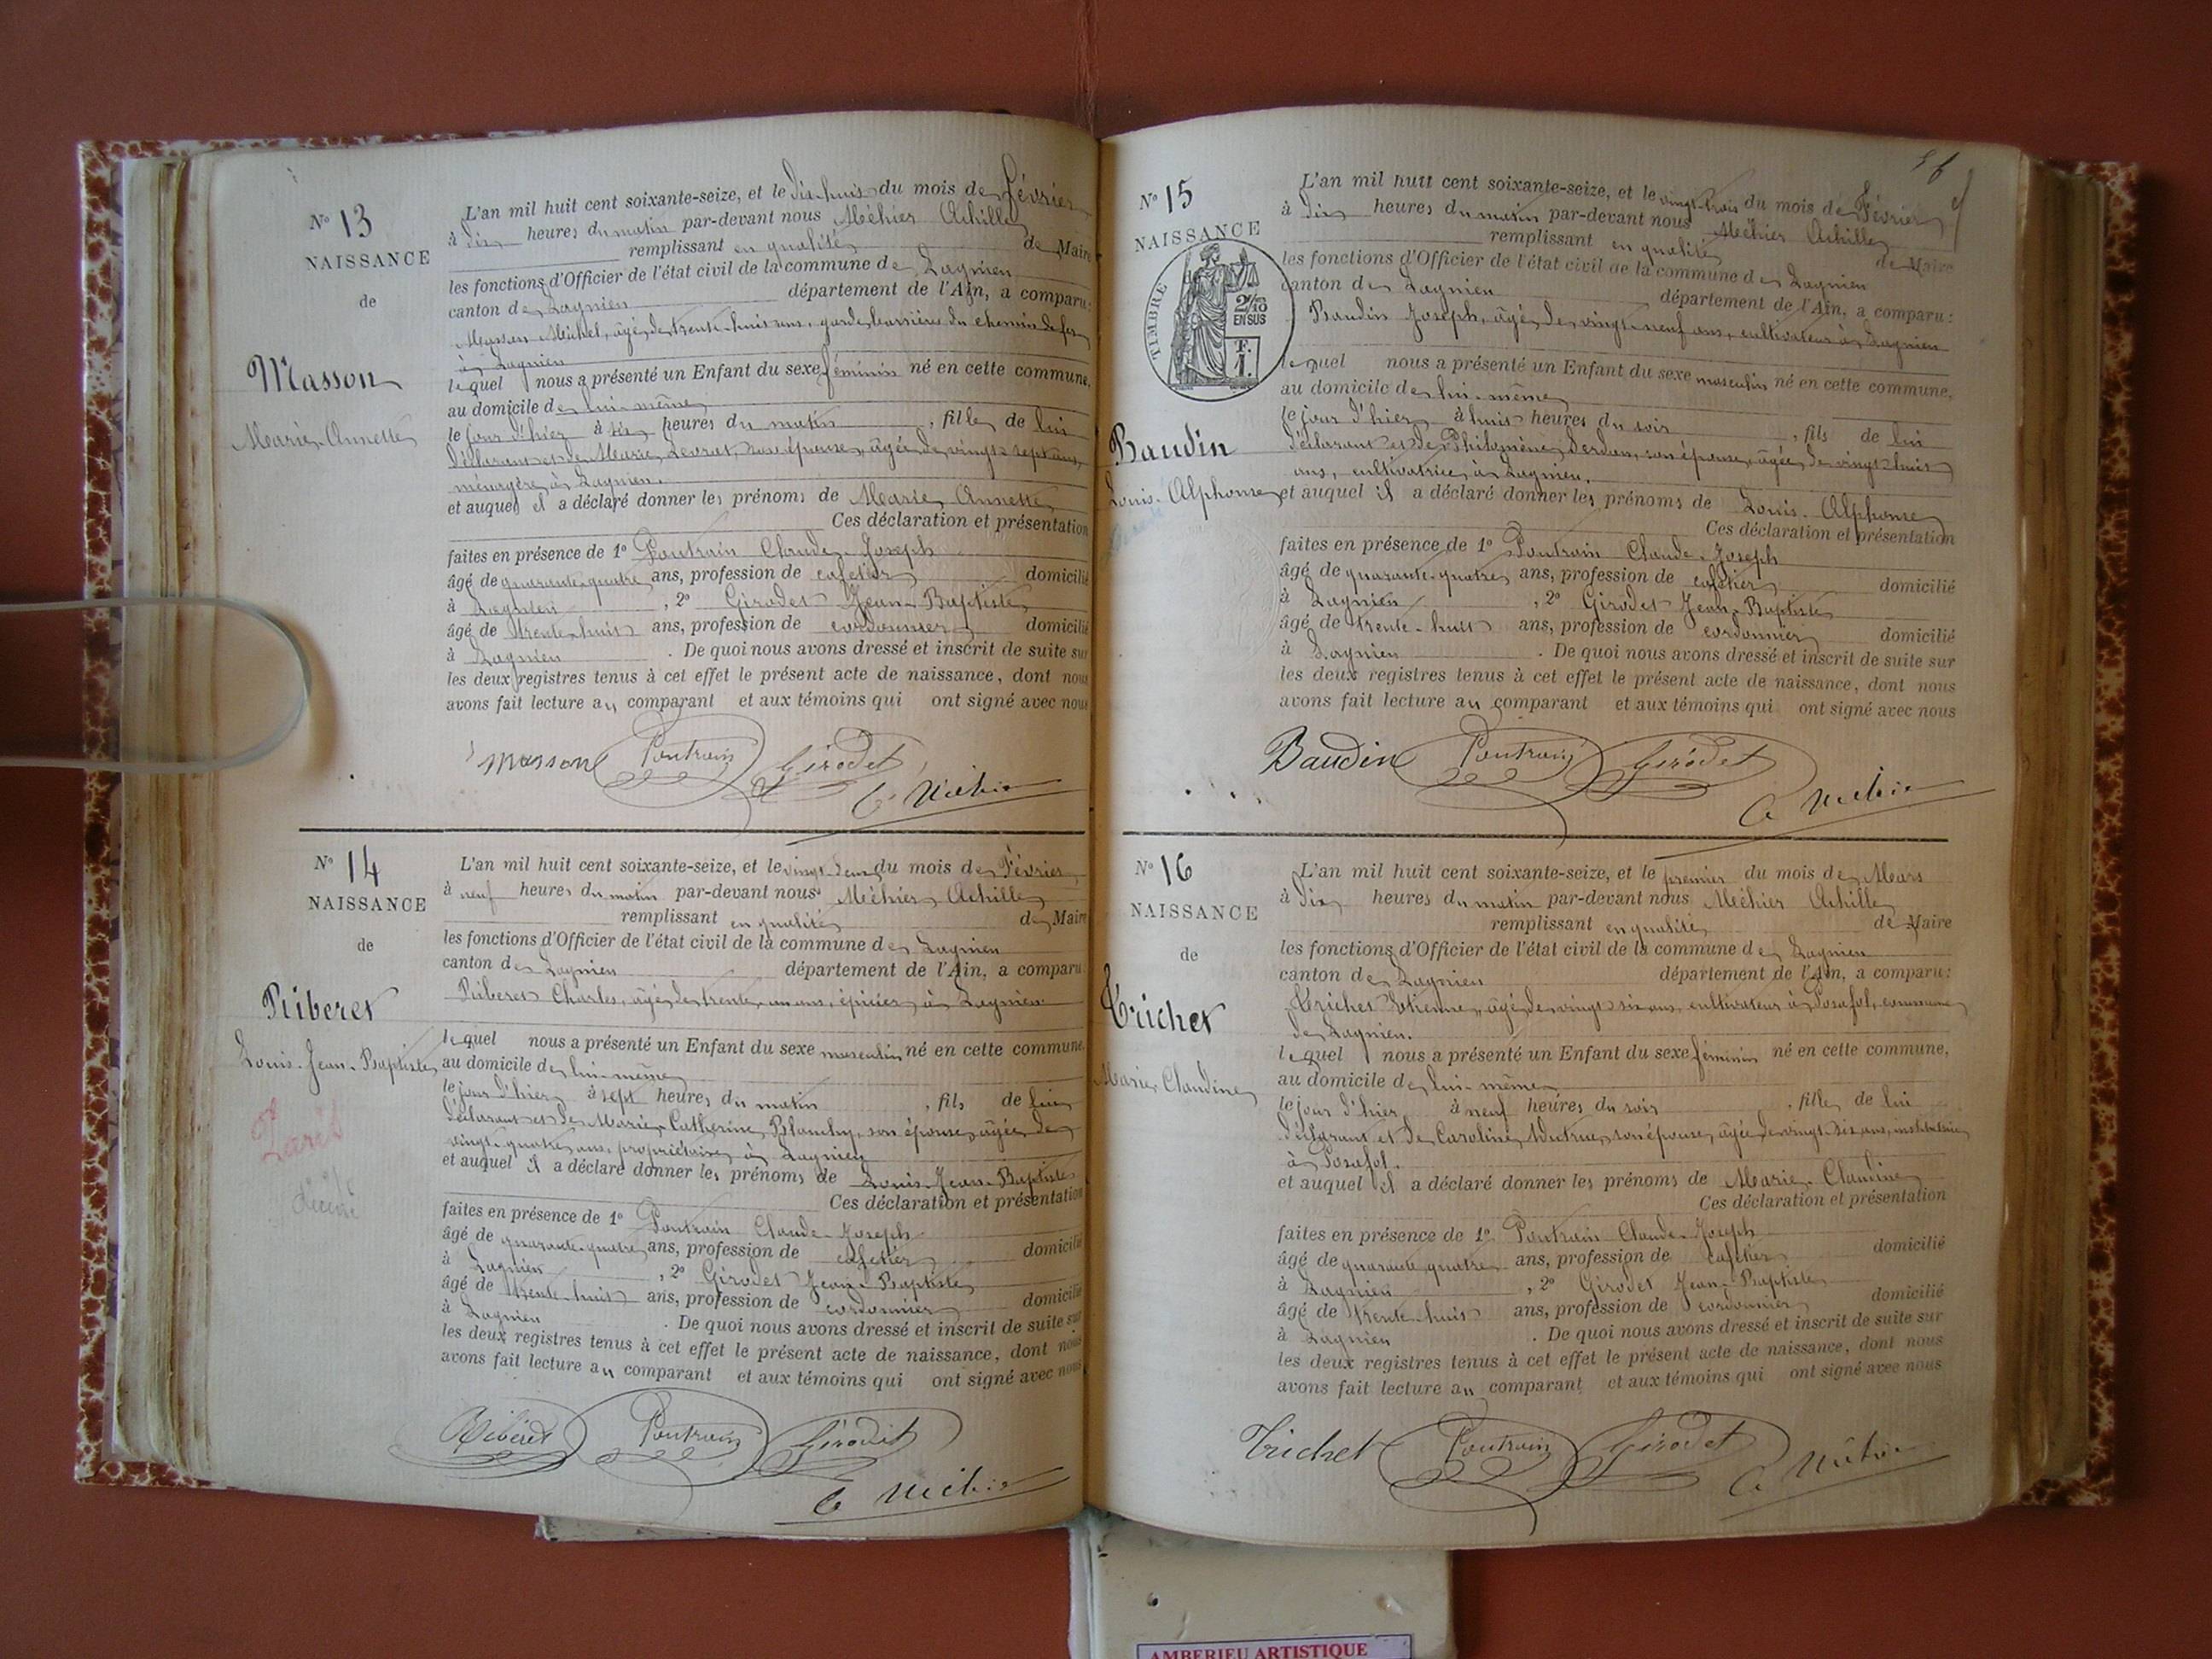 N° 13
NAISSANCE
de
Masson
Marie-Annette
L'an mil huit cent soixante-seize, et le dix-huit du mois de Février
à dix heures du matin par-devant nous Méhier Achille
remplissant en qualité de Maire
les fonctions d'Officier de l'état civil de la commune de Lagnieu
canton de Lagnieu département de l'Ain, a comparu:
Masson Michel, âgé de trente-huit ans, garde barrière du chemin de fer
à Lagnieu
lequel nous a présenté un Enfant du sexe féminin né en cette commune,
au domicile de lui-même
le jour d'hier à six heures du matin, fille de lui
déclarant et de Marie Levrat, son épouse, âgée de vingt-sept ans,
ménagère à Lagnieu.
et auquel il a déclaré donner les prénoms de Marie Annette
Ces déclaration et présentation
faites en présence de 1° Poutrain Claude-Joseph
âgé de quarante-quatre ans, profession de cafetier domicilié
à Lagnieu, 2° Girodet Jean-Baptiste
âgé de trente-huit ans, profession de cordonnier domicilié
à Lagnieu. De quoi nous avons dressé et inscrit de suite sur
les deux registres tenus à cet effet le présent acte de naissance, dont nous
avons fait lecture au comparant et aux témoins qui ont signé avec nous
Masson Poutrain Girodet
A Méhier
N° 14
NAISSANCE
de
Riberet
Louis-Jean-Baptiste
décédé
L'an mil huit cent soixante-seize, et le vingt-deux du mois de Février
à neuf heures du matin par-devant nous Méhier Achille
remplissant en qualité de Maire
les fonctions d'Officier de l'état civil de la commune de Lagnieu
canton de Lagnieu département de l'Ain, a comparu
Riberet Charles, âgé de trente-un ans, épicier à Lagnieu
lequel nous a présenté un Enfant du sexe masculin né en cette commune,
au domicile de lui-même
le jour d'hier à sept heures du matin, fils de lui
déclarant et de Marie-Catherine Blanchy, son épouse, âgée de
vingt-quatre ans, propriétaire à Lagnieu
et auquel il a déclaré donner les prénoms de Louis-Jean-Baptiste
Ces déclaration et présentation
faites en présence de 1° Poutrain Claude-Joseph
âgé de quarante-quatre ans, profession de cafetier domicilié
à Lagnieu, 2° Girodet Jean-Baptiste
âgé de trente-huit ans, profession de cordonnier domicilié
à Lagnieu. De quoi nous avons dressé et inscrit de suite sur
les deux registres tenus à cet effet le présent acte de naissance, dont nous
avons fait lecture au comparant et aux témoins qui ont signé avec nous
Riberet Poutrain Girodet
A Méhier
N° 15
NAISSANCE
TIMBRE
2/10
EN SUS
F.
1.
Baudin
Louis-Alphonse
L'an mil huit cent soixante-seize, et le vingt-trois du mois de Février
à dix heures du matin par-devant nous Méhier Achille
remplissant en qualité de Maire
les fonctions d'Officier de l'état civil de la commune de Lagnieu
canton de Lagnieu département de l'Ain, a comparu:
Baudin Joseph, âgé de vingt-neuf ans, cultivateur à Lagnieu
lequel nous a présenté un Enfant du sexe masculin né en cette commune,
au domicile de lui-même
le jour d'hier à huit heures du soir, fils de lui
déclarant et de Philomène Serdon, son épouse, âgée de vingt-huit
ans, cultivatrice à Lagnieu.
et auquel il a déclaré donner les prénoms de Louis-Alphonse
Ces déclaration et présentation
faites en présence de 1° Poutrain Claude-Joseph
âgé de quarante-quatre ans, profession de cafetier domicilié
à Lagnieu, 2° Girodet Jean-Baptiste
âgé de trente-huit ans, profession de cordonnier domicilié
à Lagnieu. De quoi nous avons dressé et inscrit de suite sur
les deux registres tenus à cet effet le présent acte de naissance, dont nous
avons fait lecture au comparant et aux témoins qui ont signé avec nous
Baudin Poutrain Girodet
A Méhier
N° 16
NAISSANCE
de
Trichet
Marie Claudine
L'an mil huit cent soixante-seize, et le premier du mois de Mars
à dix heures du matin par-devant nous Méhier Achille
remplissant en qualité de Maire
les fonctions d'Officier de l'état civil de la commune de Lagnieu
canton de Lagnieu département de l'Ain, a comparu:
Trichet Etienne, âgé de vingt-six ans, cultivateur à Posafol, commune
de Lagnieu.
lequel nous a présenté un Enfant du sexe féminin né en cette commune,
au domicile de lui-même
le jour d'hier à neuf heures du soir, fille de lui
déclarant et de Caroline son épouse, âgée de vingt-six ans, institutrice
à Posafol.
et auquel il a déclaré donner les prénoms de Marie Claudine
Ces déclaration et présentation
faites en présence de 1° Poutrain Claude-Joseph
âgé de quarante-quatre ans, profession de cafetier domicilié
à Lagnieu, 2° Girodet Jean-Baptiste
âgé de trente-huit ans, profession de cordonnier domicilié
à Lagnieu. De quoi nous avons dressé et inscrit de suite sur
les deux registres tenus à cet effet le présent acte de naissance, dont nous
avons fait lecture au comparant et aux témoins qui ont signé avec nous
Trichet Poutrain Girodet
A Méhier
AMBERIEU ARTISTIQUE